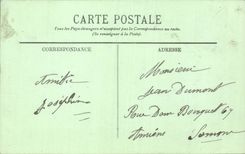 CARTE POSTALE
Tous les Pays étrangers n'acceptent pas la Correspondance au recto.
(Se renseigner à la Poste)
CORRESPONDANCE
ADRESSE
Amitié
Joséphine
Monsieur
Jean Dumont
Rue Dom Bouquet 67
Amiens
Somme